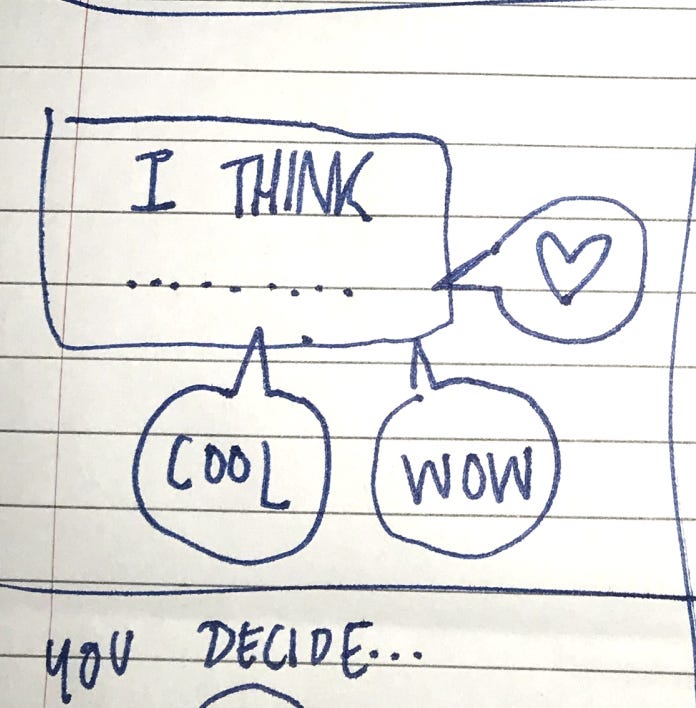 I THINK
..........
COOL
WOW
YOU DECIDE...